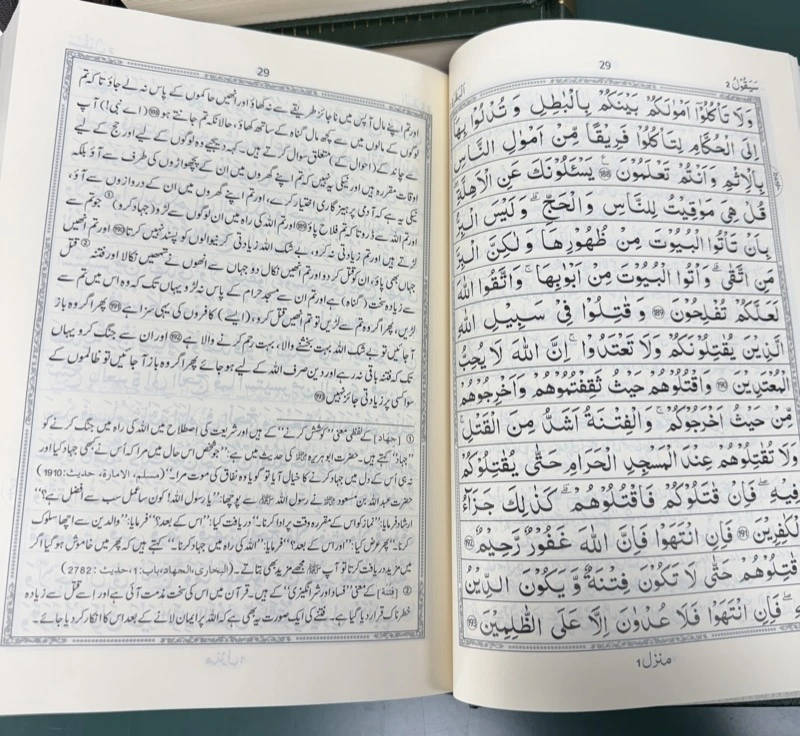 29
سَيَقُوْلُ 2
وَلَا تَاْكُلُوْٓا اَمْوَالَكُمْ بَيْنَكُمْ بِالْبَاطِلِ وَ تُدْلُوْا بِهَآ
اِلَى الْحُكَّامِ لِتَاْكُلُوْا فَرِيْقًا مِّنْ اَمْوَالِ النَّاسِ
بِالْاِثْمِ وَاَنْتُمْ تَعْلَمُوْنَ 188 يَسْـَٔلُوْنَكَ عَنِ الْاَهِلَّةِ
قُلْ هِيَ مَوَاقِيْتُ لِلنَّاسِ وَالْحَجِّ وَلَيْسَ الْبِرُّ
بِاَنْ تَاْتُوا الْبُيُوْتَ مِنْ ظُهُوْرِهَا وَلٰكِنَّ الْبِرَّ
مَنِ اتَّقٰى وَاْتُوا الْبُيُوْتَ مِنْ اَبْوَابِهَا وَاتَّقُوا اللّٰهَ
لَعَلَّكُمْ تُفْلِحُوْنَ 189 وَ قٰتِلُوْا فِيْ سَبِيْلِ اللّٰهِ
الَّذِيْنَ يُقَاتِلُوْنَكُمْ وَلَا تَعْتَدُوْا اِنَّ اللّٰهَ لَا يُحِبُّ
الْمُعْتَدِيْنَ 190 وَاقْتُلُوْهُمْ حَيْثُ ثَقِفْتُمُوْهُمْ وَاَخْرِجُوْهُمْ
مِّنْ حَيْثُ اَخْرَجُوْكُمْ وَالْفِتْنَةُ اَشَدُّ مِنَ الْقَتْلِ
وَلَا تُقٰتِلُوْهُمْ عِنْدَ الْمَسْجِدِ الْحَرَامِ حَتّٰى يُقٰتِلُوْكُمْ
فِيْهِ فَاِنْ قٰتَلُوْكُمْ فَاقْتُلُوْهُمْ كَذٰلِكَ جَزَآءُ
الْكٰفِرِيْنَ 191 فَاِنِ انْتَهَوْا فَاِنَّ اللّٰهَ غَفُوْرٌ رَّحِيْمٌ 192
قٰتِلُوْهُمْ حَتّٰى لَا تَكُوْنَ فِتْنَةٌ وَّ يَكُوْنَ الدِّيْنُ
فَاِنِ انْتَهَوْا فَلَا عُدْوَانَ اِلَّا عَلَى الظّٰلِمِيْنَ 193
منزل 1
29
اور تم اپنے مال آپس میں ناجائز طریقے سے نہ کھاؤ اور انھیں حاکموں کے پاس نہ لے جاؤ تاکہ تم
لوگوں کے مالوں میں سے کچھ مال گناہ کے ساتھ کھاؤ، حالانکہ تم جانتے ہو 188 (اے نبی!) آپ
سے چاند کے (احوال کے) متعلق سوال کرتے ہیں۔ کہہ دیجیے وہ لوگوں کے لیے اور حج کے لیے
اوقات مقررہ ہیں اور نیکی یہ نہیں کہ تم اپنے گھروں میں ان کے پچھواڑوں کی طرف سے آؤ بلکہ
نیکی یہ ہے کہ آدمی پرہیزگاری اختیار کرے، اور تم اپنے گھروں میں ان کے دروازوں سے آؤ،
اور تم اللہ سے ڈرو تاکہ تم فلاح پاؤ 189 اور تم اللہ کی راہ میں ان لوگوں سے لڑو (جہاد کرو) ① جو تم سے
لڑتے ہیں اور تم زیادتی نہ کرو، بے شک اللہ زیادتی کرنیوالوں کو پسند نہیں کرتا 190 اور تم انھیں
جہاں بھی پاؤ، ان کو قتل کر دو اور تم انھیں نکال دو جہاں سے انھوں نے تمھیں نکالا اور فتنہ ② قتل
سے زیادہ سخت (گناہ) ہے اور تم ان سے مسجد حرام کے پاس نہ لڑو یہاں تک کہ وہ اس میں تم سے
لڑیں، پھر اگر وہ تم سے لڑیں تو تم انھیں قتل کرو، (ایسے) کافروں کی یہی سزا ہے 191 پھر اگر وہ باز
آ جائیں تو بے شک اللہ بہت بخشنے والا، بہت رحم کرنے والا ہے 192 اور ان سے جنگ کرو یہاں
تک کہ فتنہ باقی نہ رہے اور دین صرف اللہ کے لیے ہو جائے پھر اگر وہ باز آ جائیں تو ظالموں کے
سوا کسی پر زیادتی جائز نہیں 193
① [جہاد] کے لفظی معنی ''کوشش کرنے'' کے ہیں اور شریعت کی اصطلاح میں اللہ کی راہ میں جنگ کرنے کو
''جہاد'' کہتے ہیں۔ حضرت ابوہریرہ ؓ کی حدیث میں ہے: ''جو شخص اس حال میں مرا کہ اس نے کبھی جہاد کیا اور
نہ ہی اس کے دل میں جہاد کرنے کا خیال آیا تو گویا وہ نفاق کی موت مرا۔'' (مسلم، الامارۃ، حدیث: 1910)
حضرت عبداللہ بن مسعود ؓ نے رسول اللہ ﷺ سے پوچھا: ''یا رسول اللہ! کون سا عمل سب سے افضل ہے؟''
ارشاد فرمایا: ''نماز کو اس کے مقررہ وقت پر ادا کرنا۔'' دریافت کیا: ''اس کے بعد؟'' فرمایا: ''والدین سے اچھا سلوک
کرنا۔'' پھر عرض کیا: ''اور اس کے بعد؟'' فرمایا: ''اللہ کی راہ میں جہاد کرنا۔'' کہتے ہیں کہ پھر میں خاموش ہو گیا اگر
میں مزید دریافت کرتا تو آپ ﷺ مجھے مزید بھی بتاتے۔ (البخاری، الجہاد، باب: 1، حدیث: 2782)
② [فتنہ] کے معنی ''فساد اور شر انگیزی'' کے ہیں۔ قرآن میں اس کی سخت مذمت آئی ہے اور اسے قتل سے زیادہ
خطرناک قرار دیا گیا ہے۔ فتنے کی ایک صورت یہ بھی ہے کہ اللہ پر ایمان لانے کے بعد اس کا انکار کر دیا جائے۔
منزل 1